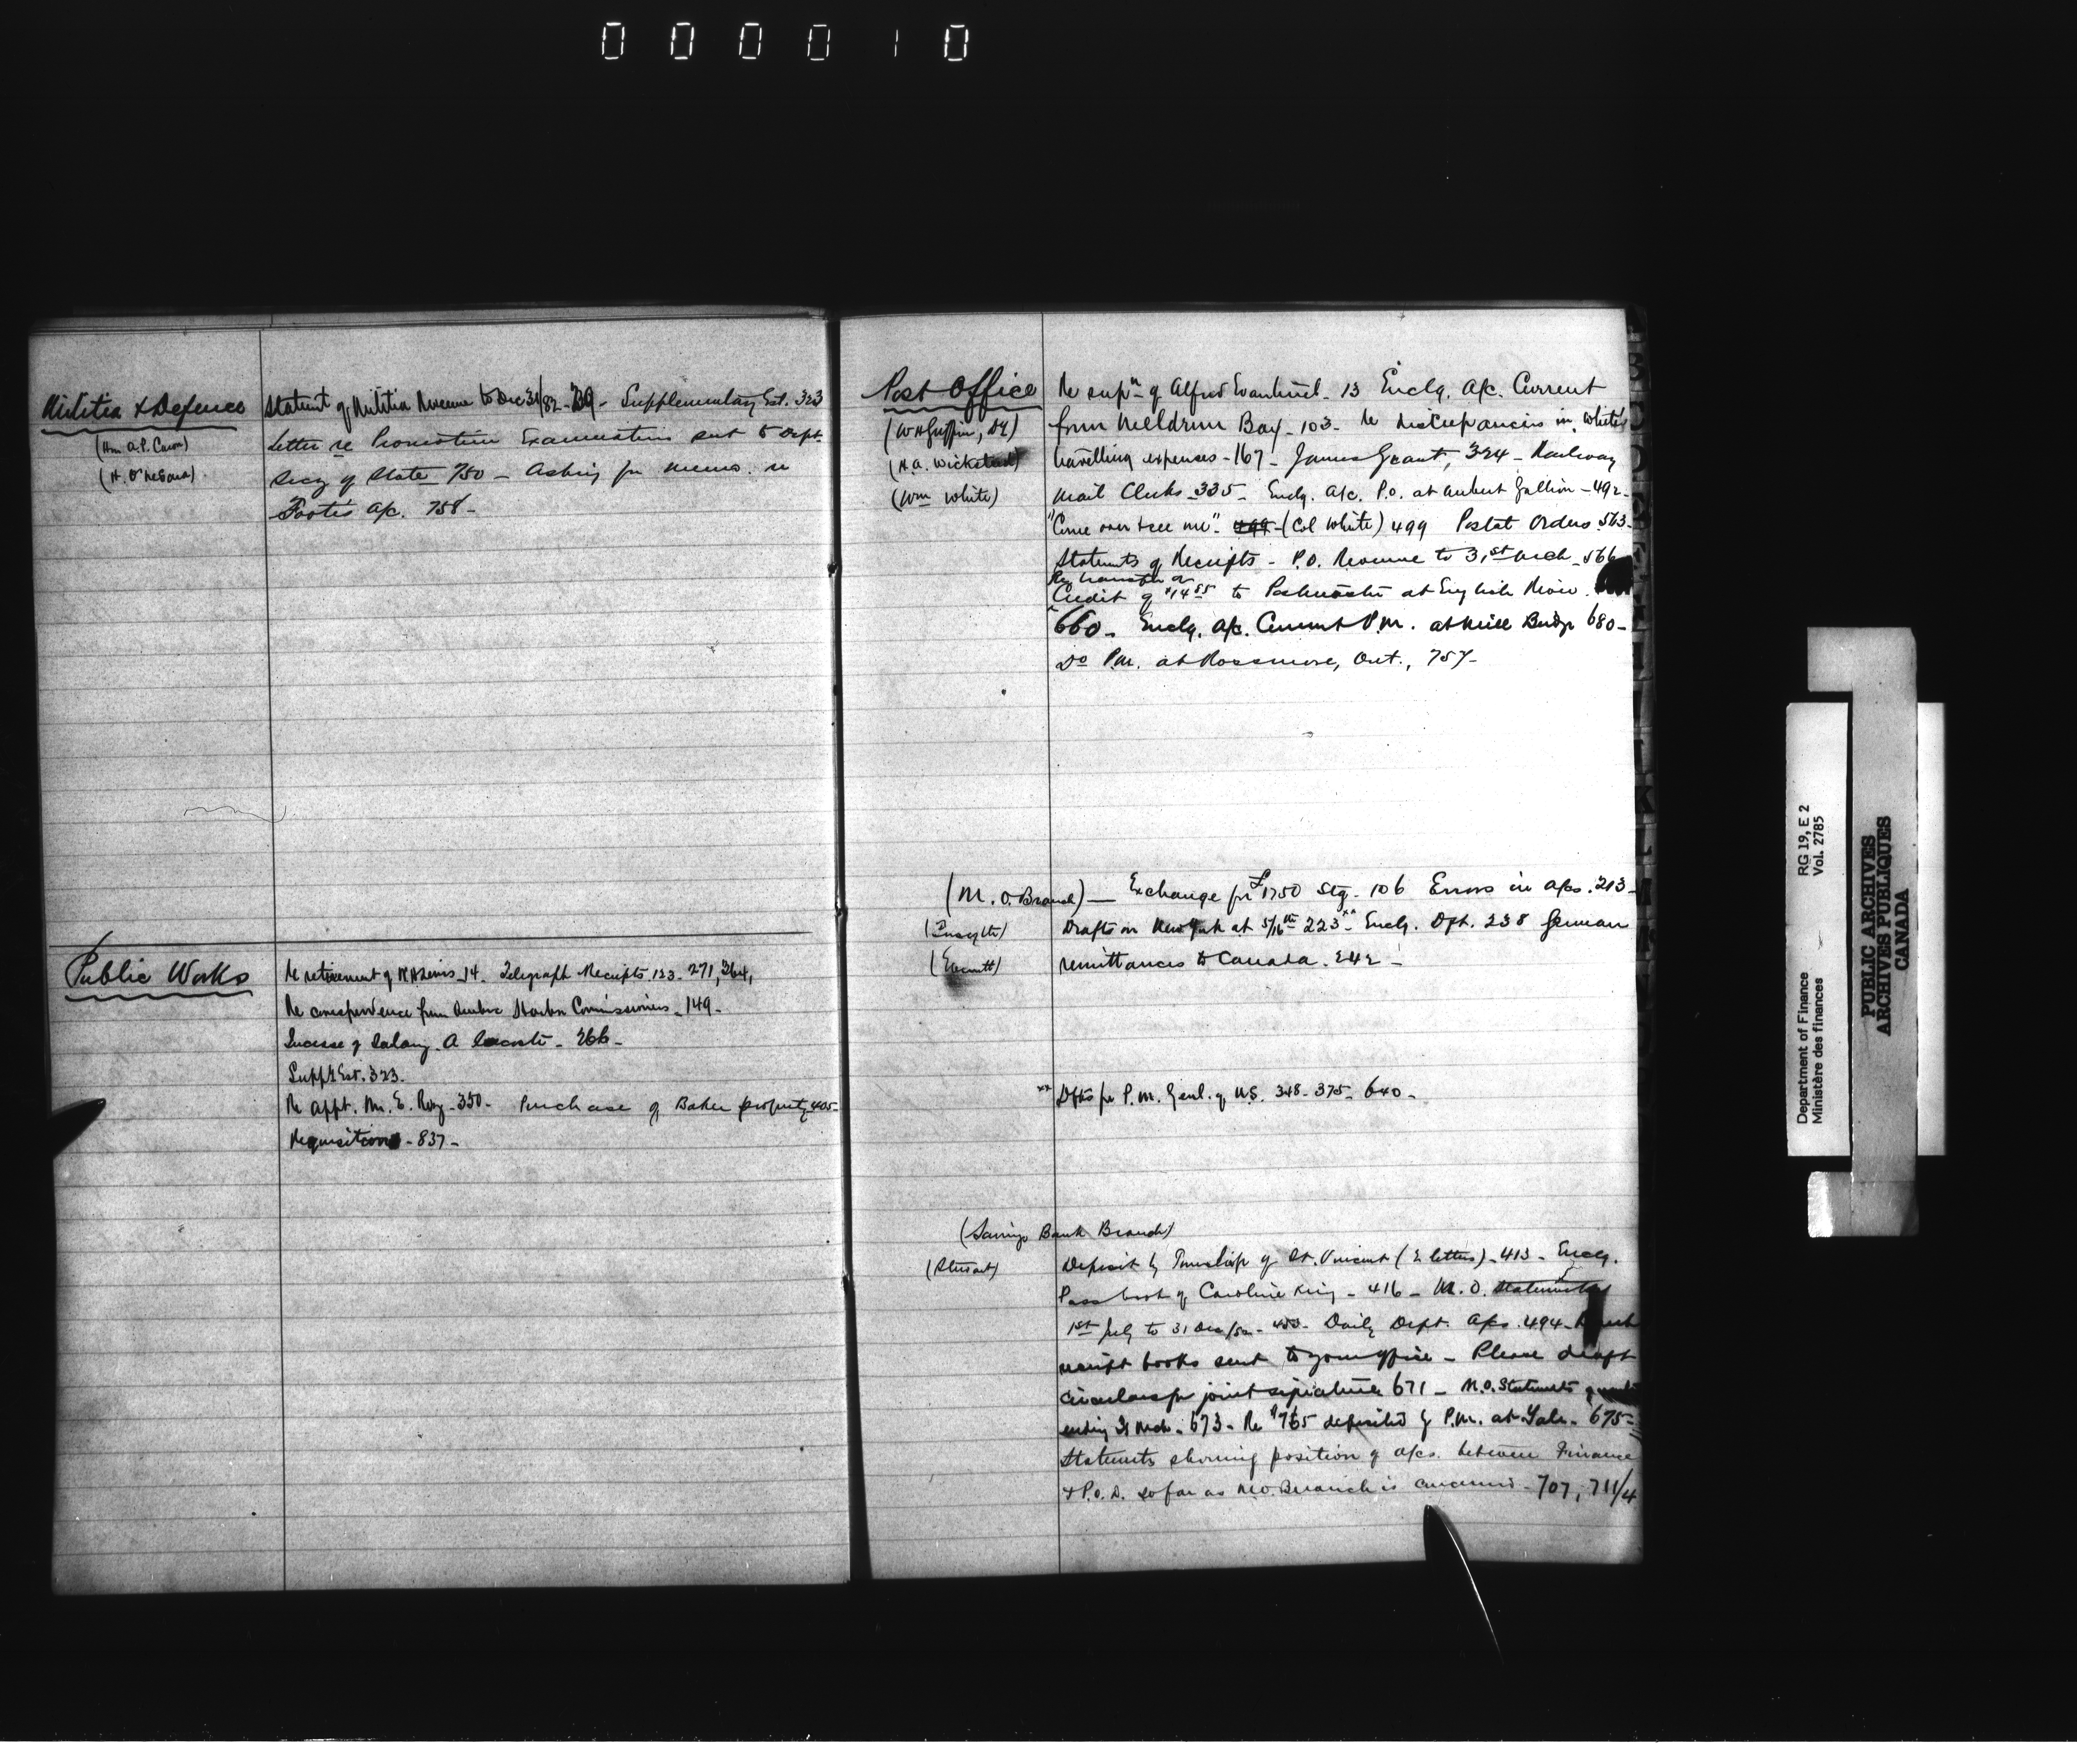 000010
Militia & Defence
(Hon A.P. Caron)
Statemt of Militia Revenue to Dec 31/82 - 239 - Supplementary Est. 323
Letter re Promotion Examinations sent to Dept.
Secy of State 750 - Asking for memo. re
Foote's a/c. 758 -
Public Works
Re retirement of - 14. Telegraph Receipts. 123 - 271, 364,
Re correspondence from Quebec Harbor Commissioners - 149 -
Increase of Salary. A Lacoste - 266 -
Suppl Est. 323.
Re appt. Mr. E. Roy - 350 - Purchase of Baker property 405 -
Requisitions - 837 -
Post Office
(W H Griffin, DM)
(H.A. Wicksteed)
(Wm White)
Re sup.n of Alfred - 13 Enclg. a/c. Current
from Meldrum Bay - 103 - Re discrepancies in White's
travelling expenses - 167 - James Grant, 324 - Railway
Mail Clerks - 335 - Enclg. a/c. P.O. at Aubert Gallion - 492 -
"Come over & see me" - 499 - (Col White) 499 Postal Orders 563 -
Statemts of Receipts - P.O. Revenue to 31st Mch - 566
Re transfer of
Credit of $14 55 to Postmaster at English River.
660 - Enclg. a/c. Current P.M. at Mill Bridge 680 -
Do P.M. at Rossmore, Ont., 757 -
(M. O. Branch) — Exchange for £1750 Stg - 106 Errors in a/cs. 213 -
(Forsyth)
Drafts on New York at 5/16th 223 - xx Enclg. Dft. 238 German
(Everett)
remittances to Canada. 242 -
xx Dfts for P.M. Genl. of U.S. 348 - 375 - 640 -
(Savings Bank Branch)
(Stewart)
Deposit by Township of St. Vincent (2 letters) - 413 - Enclg.
Pass book of Caroline King - 416 - M.O. Statements
1st July to 31 Dec/82 - 453 - Daily Dept. a/cs. 494 -
receipt books sent to your office - Please draft
circular for joint signature 671 - M.O. Statemts
ending 31 Mch - 673 - Re $765 deposited by P.M. at Yale - 675 -
Statemts showing position of a/cs. between Finance
& P.O.D. so far as M.O. Branch is concerned - 707, 711/4
RG 19, E 2
Vol. 2785
Department of Finance
Ministère des finances
PUBLIC ARCHIVES
ARCHIVES PUBLIQUES
CANADA